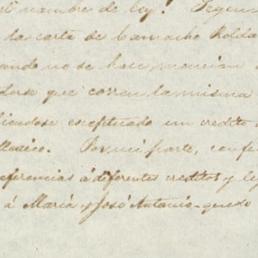 el nombre de ley! Segun
la carta de Camacho Roldan
cuando no se hace mencion
que corren la misma
esceptuado un credito
Por mi parte, conf
referencias á diferentes creditos y le
á María y José Antonio quedo